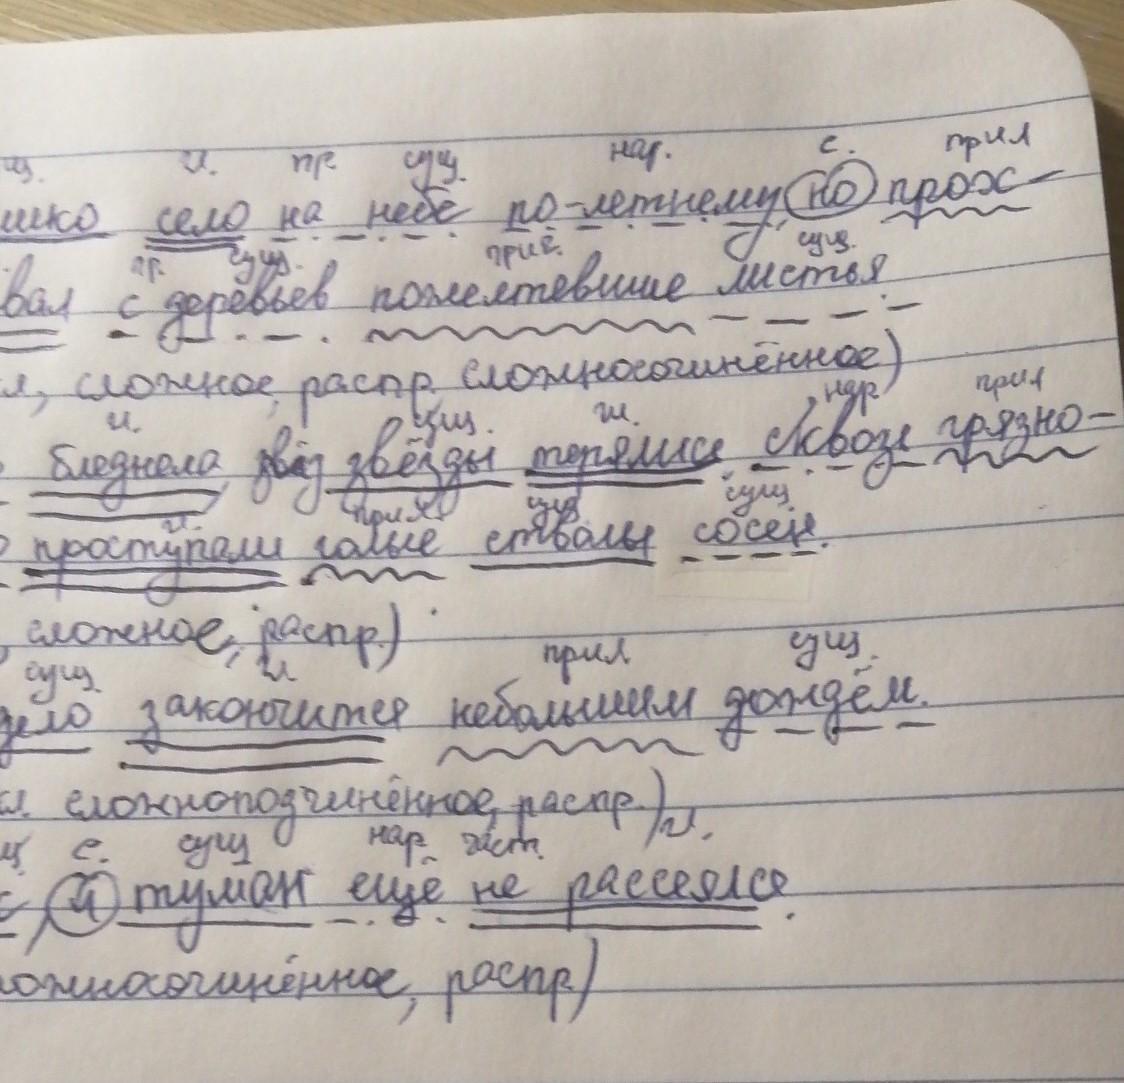 щ. гл. пр. сущ. нар. с. прил
шко село на небе по-летнему, но прох-
пр. сущ. прич. сущ.
вал с деревьев пожелтевшие листья.
л, сложное, распр. сложносочинённое)
гл. сущ. гл. нар прил
бледнела, звёзды терялись. Сквозь грязно-
гл. прил. сущ сущ
проступали голые стволы сосен.
, сложное, распр.)
сущ. гл прил сущ.
дело закончится небольшим дождём.
л. сложноподчинённое, распр.)
щ с. сущ нар. част. гл.
с, и туман ещё не рассеялся.
ложносочинённое, распр)